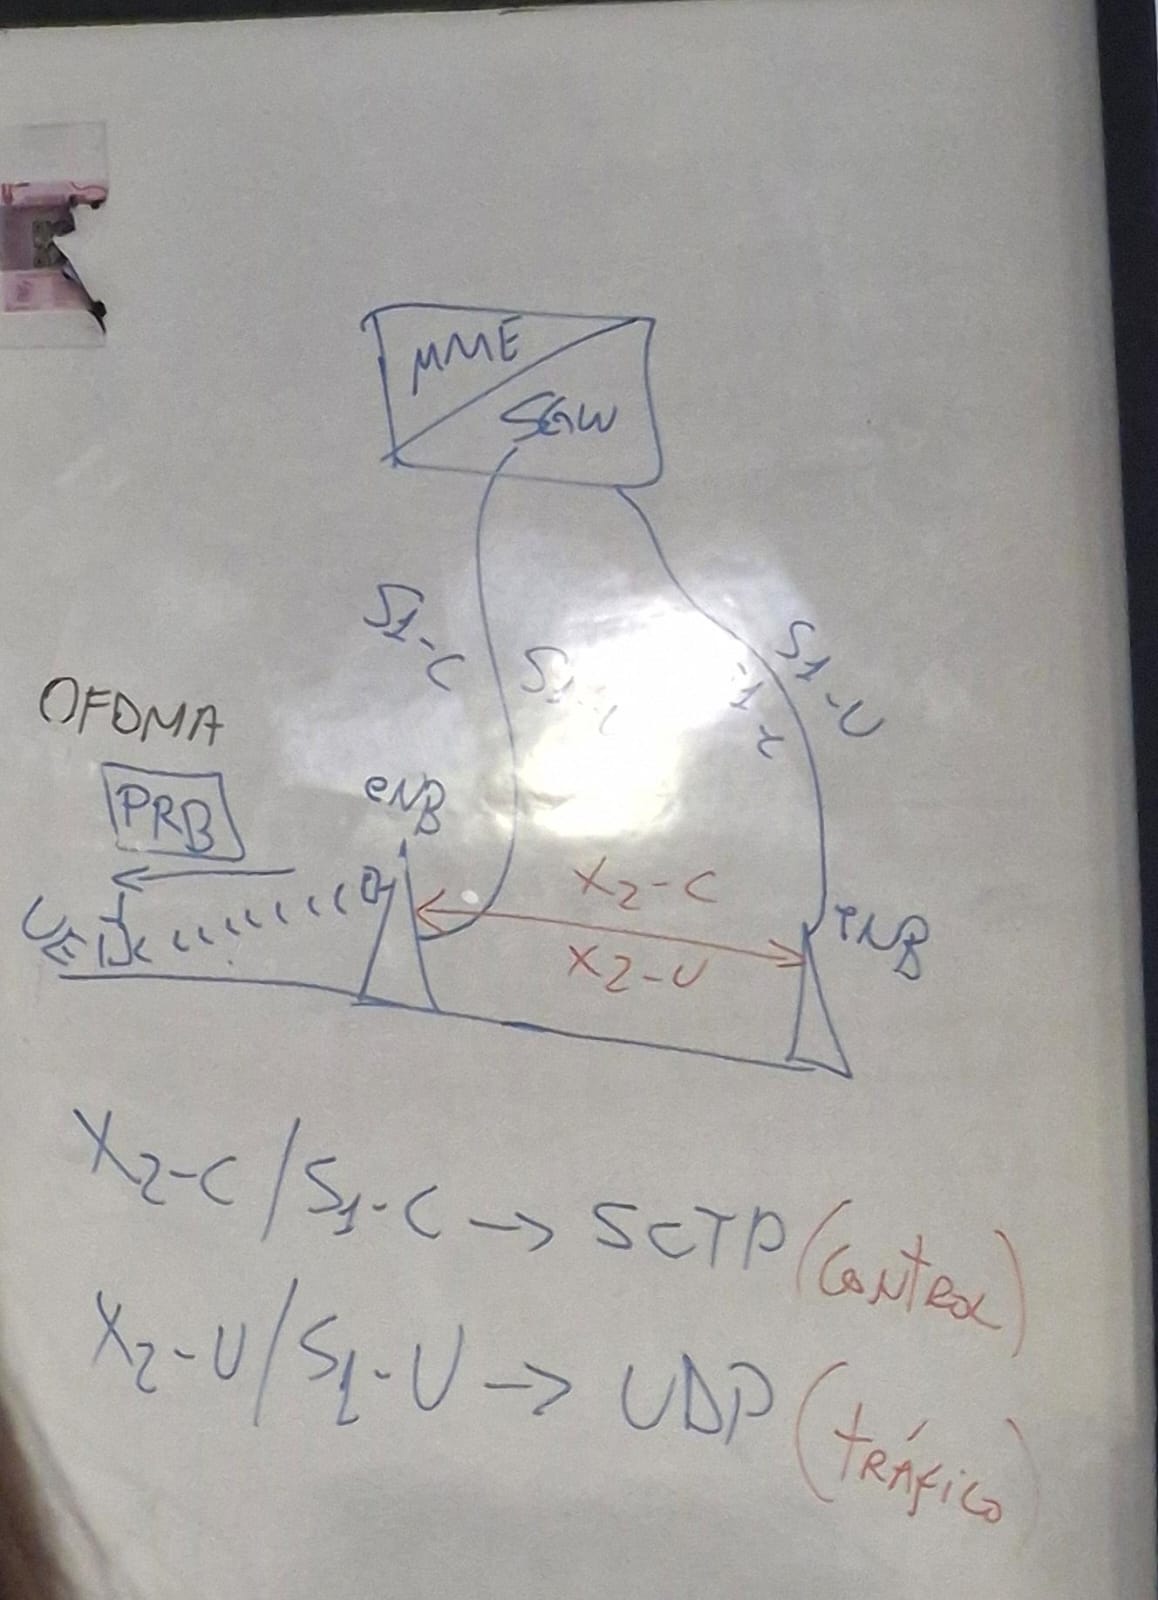 MME
SGW
S1-C
S1-U
OFDMA
PRB
eNB
UE
X2-C
X2-U
eNB
X2-C/S1-C → SCTP (CONTROL)
X2-U/S1-U → UDP (TRÁFICO)